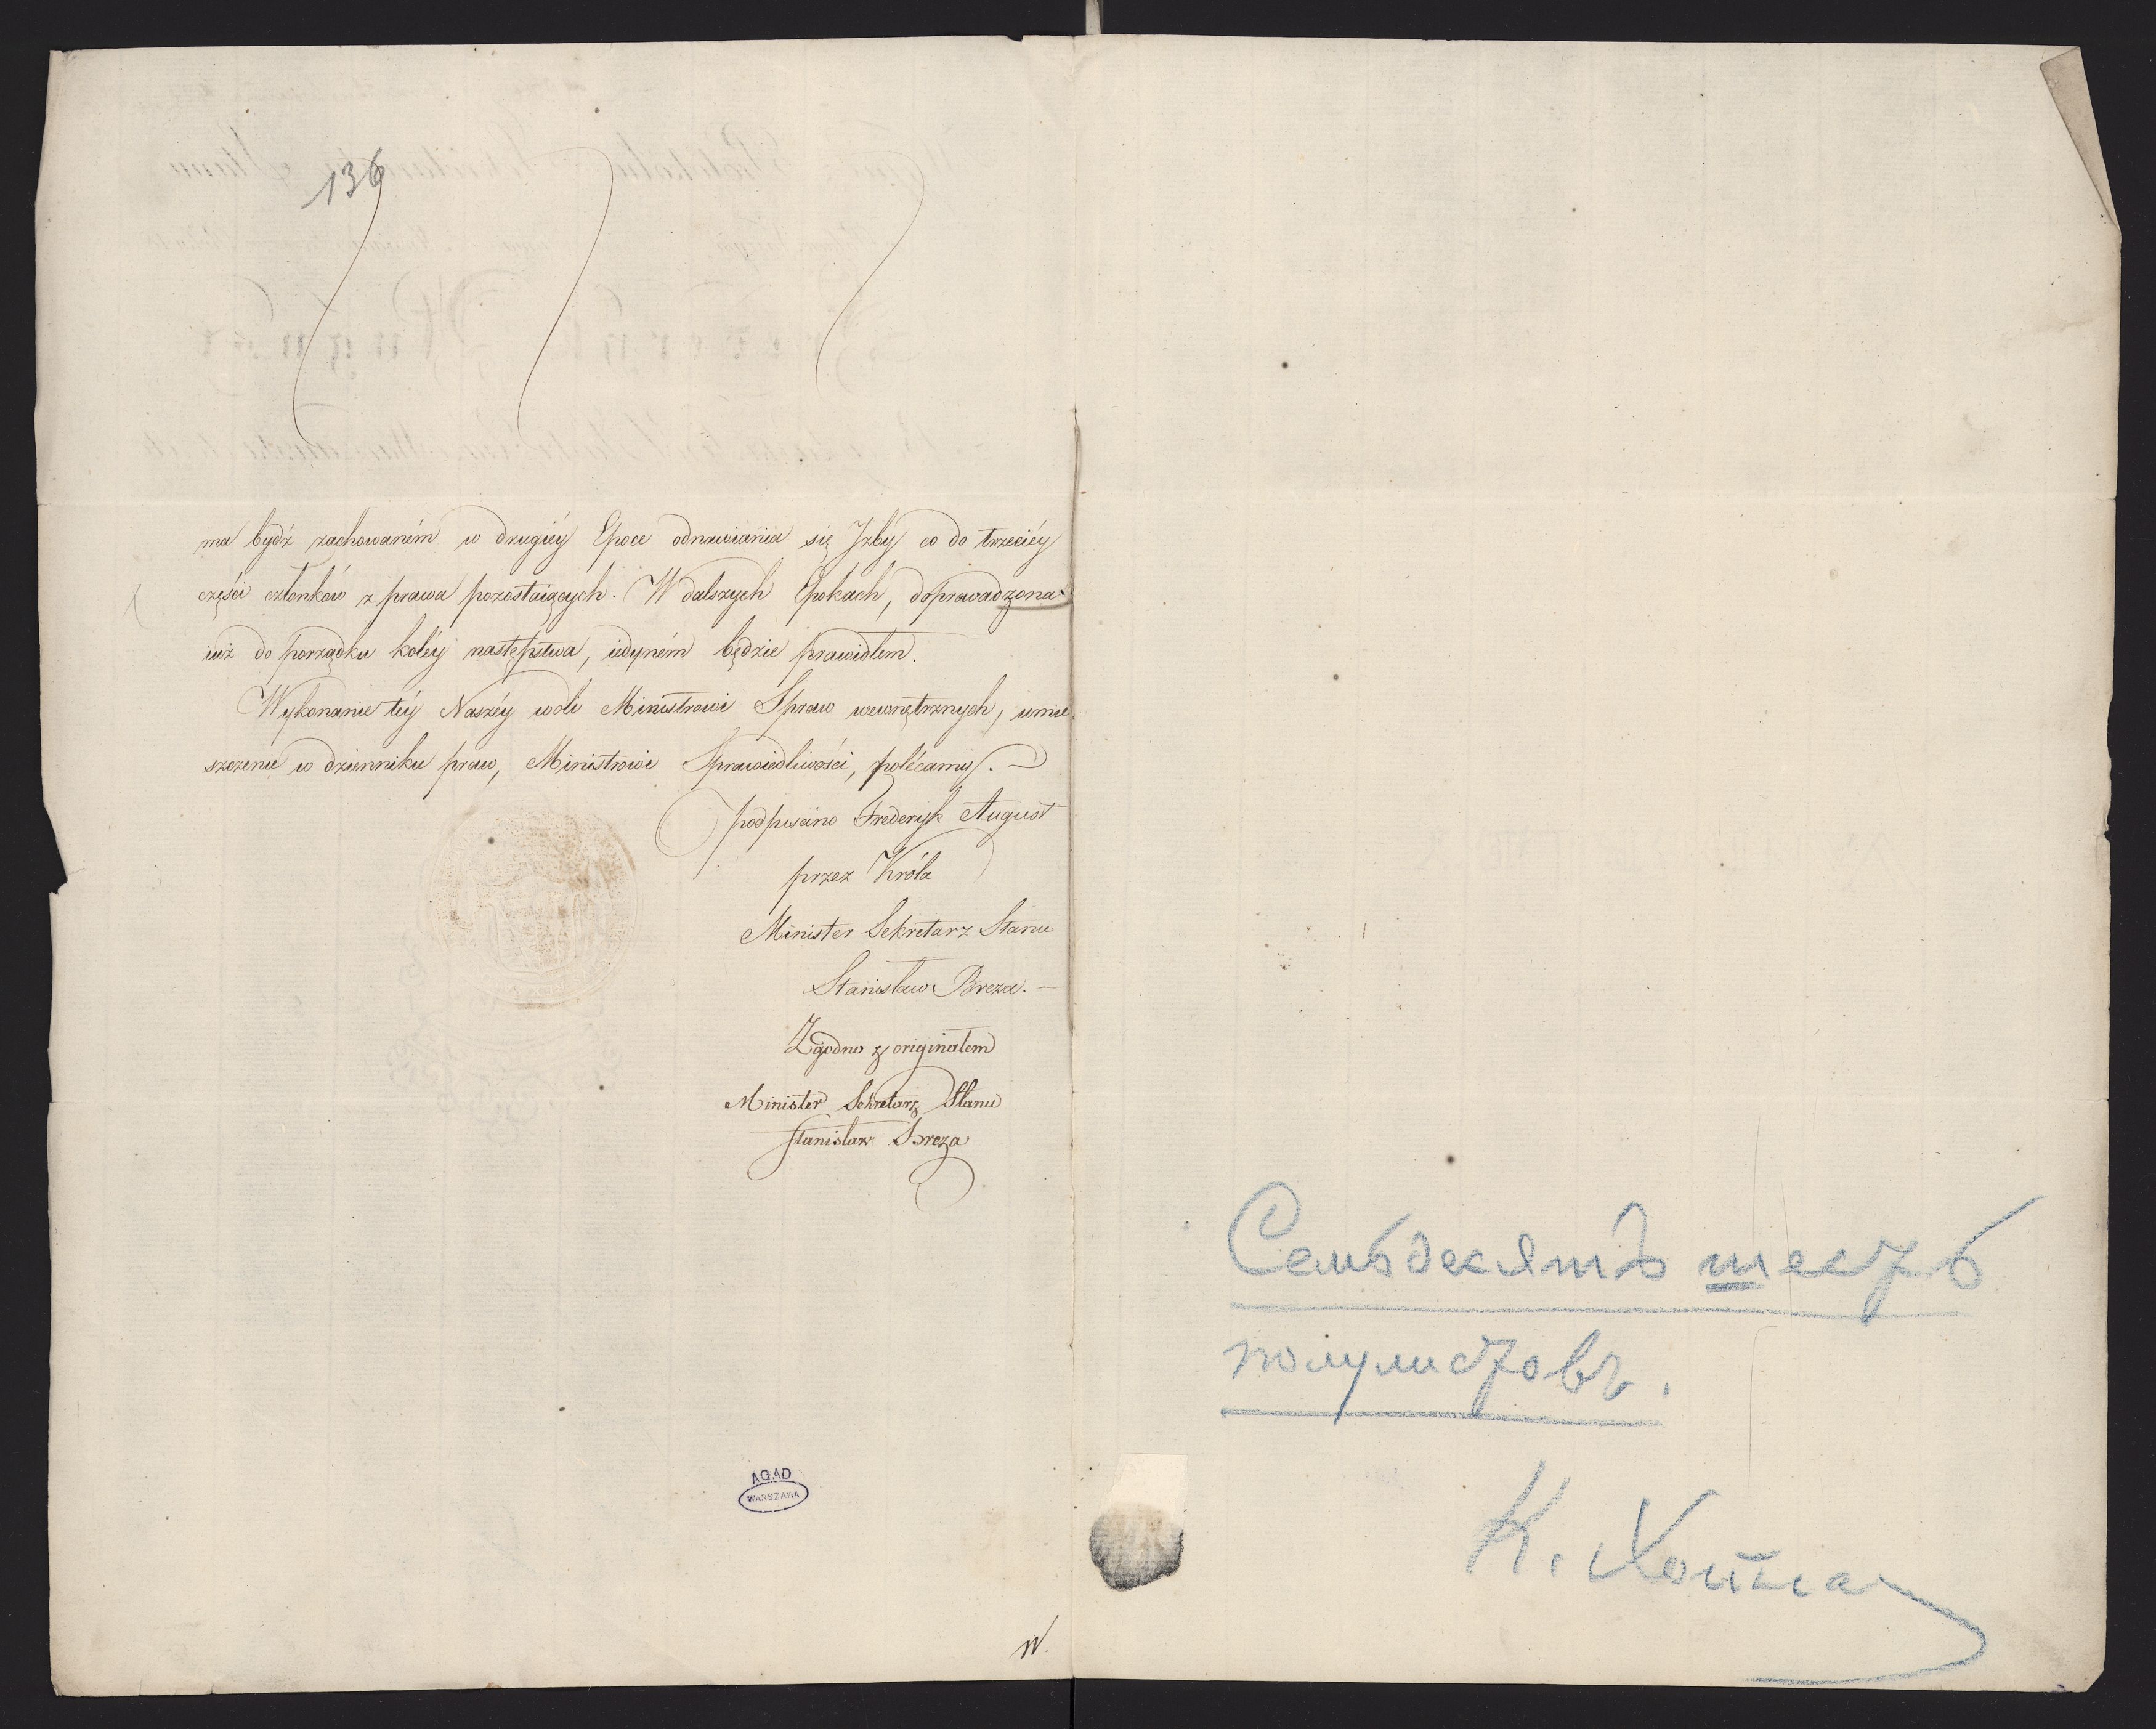 136
ma bydź zachowaném w drugiéy Epoce odnawiania się Izby co do trzeciéy
części członków z prawa pozostaiących. W dalszych Epokach, doprowadzona
iuż do porządku koléy następstwa, iedyném będzie prawidłem.
Wykonanie téy Naszéy woli Ministrowi Spraw wewnętrznych, umie
szczenie w dzienniku praw, Ministrowi Sprawiedliwości, polécamy.
podpisano Frederyk August
przez Króla
Minister Sekretarz Stanu
Stanisław Breza. —
Zgodno z originałem
Minister Sekretarz Stanu
Stanisław Breza
AGAD
WARSZAWA
W.
Семьдесятъ шесть
полулистовъ.
К.